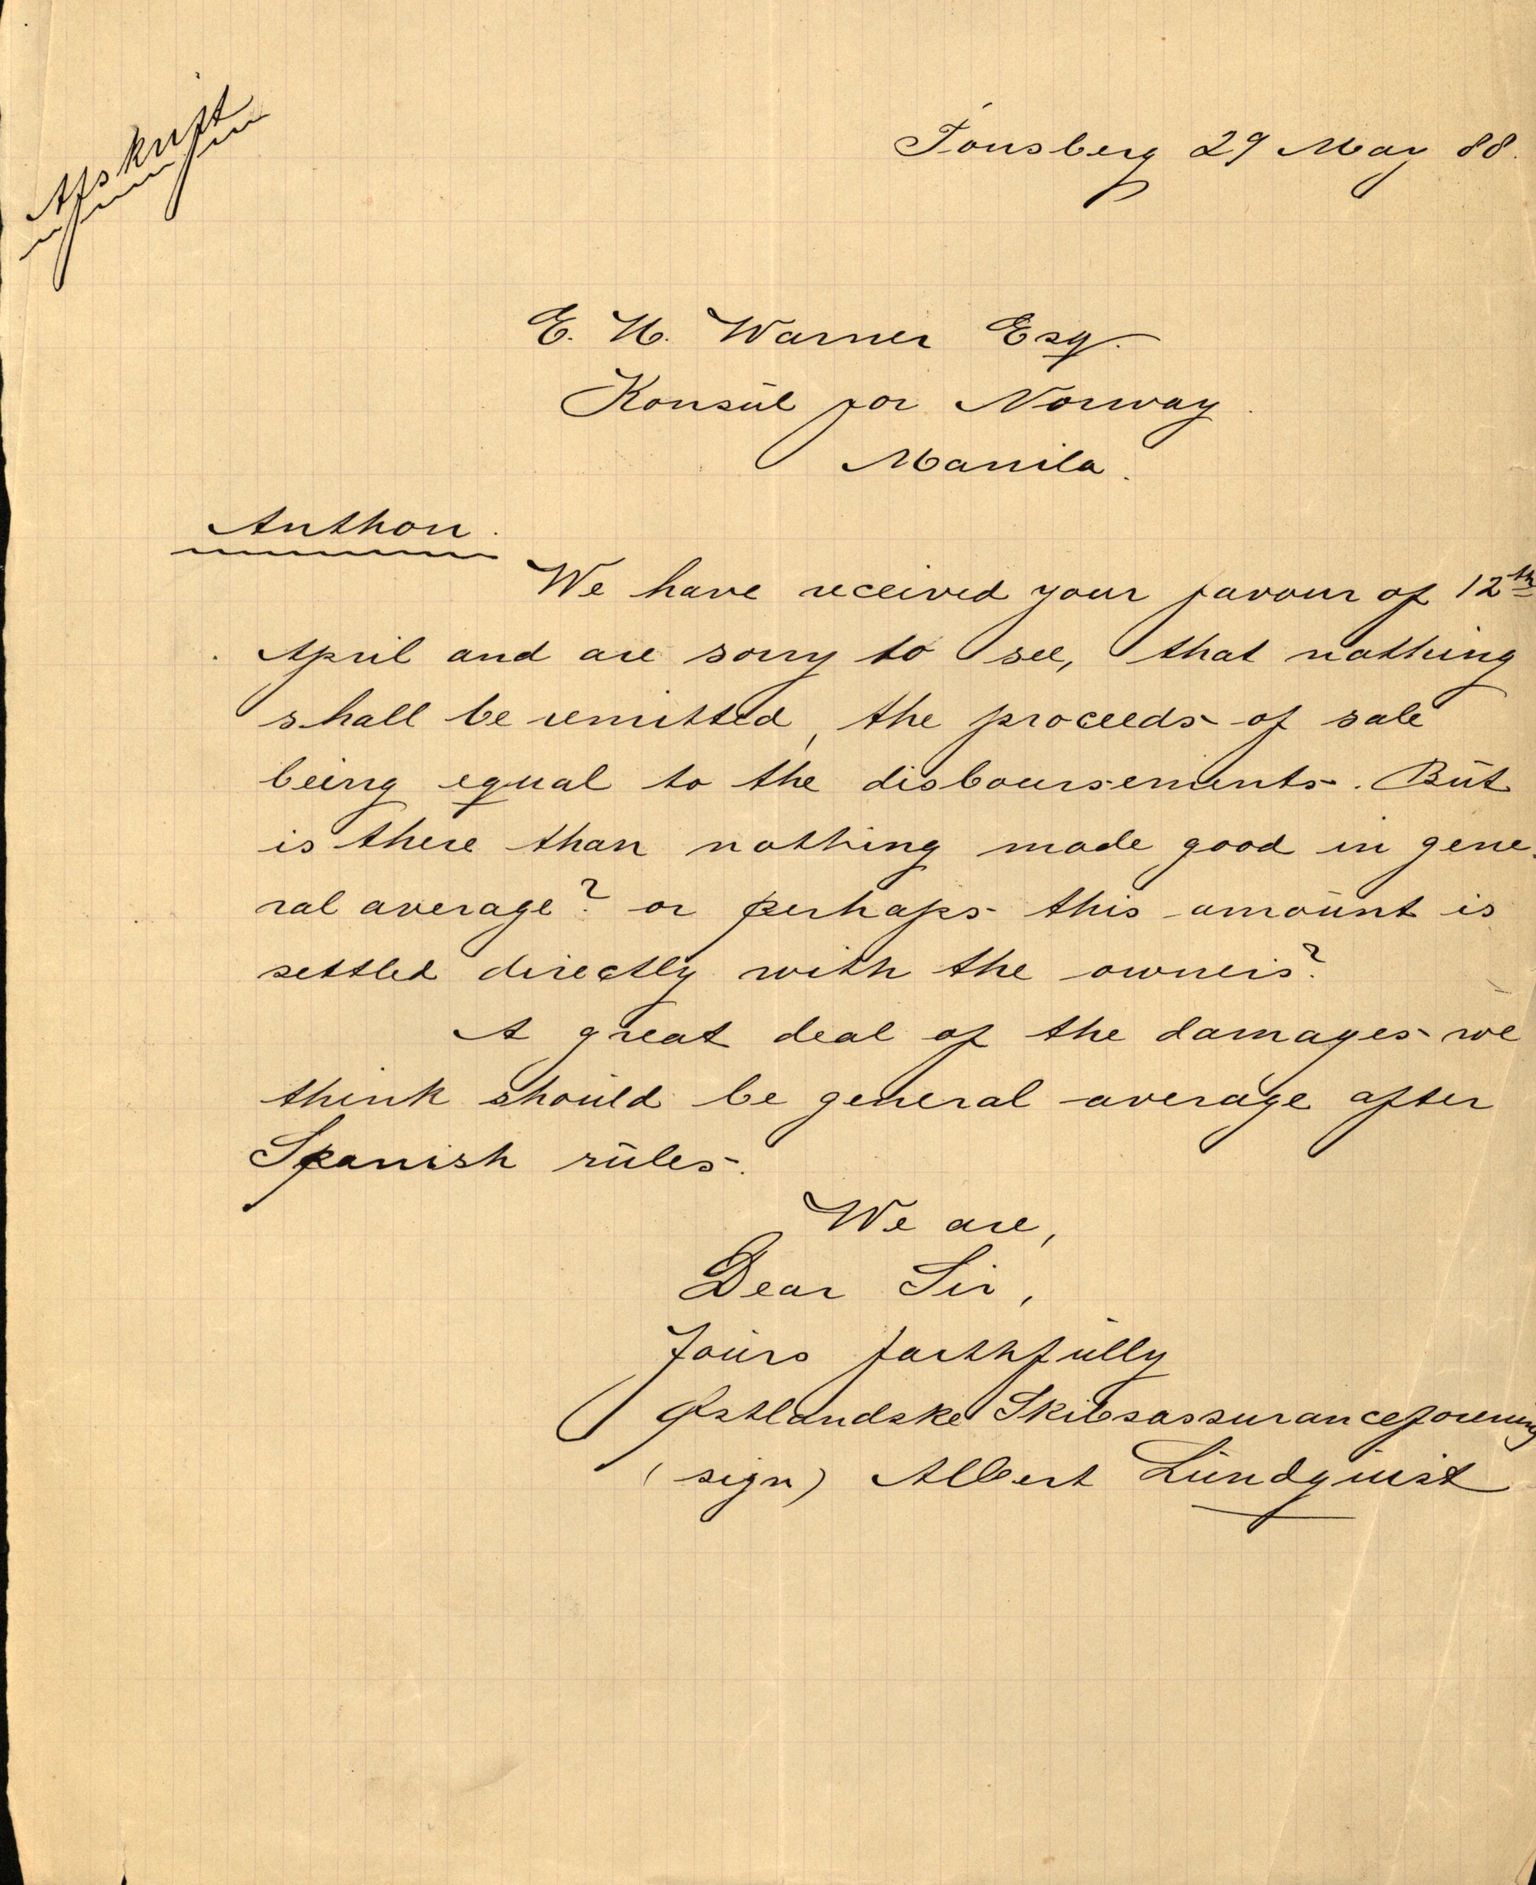 Afskrift
Tønsberg 29 May 88.
E. H. Warner Esq.
Konsul for Norway.
Manila.
Anthon.
We have received your favour of 12th
April and are sorry to see, that nothing
shall be remitted, the proceeds of sale
being equal to the disboursements. But
is there than nothing made good in gene-
ral average? or perhaps this amount is
settled directly with the owners?
A great deal of the damages we
think should be general average after
Spanish rules.
We are,
Dear Sir,
Yours faithfully
Østlandske Skibsassuranceforening
(sign) Albert Lundquist